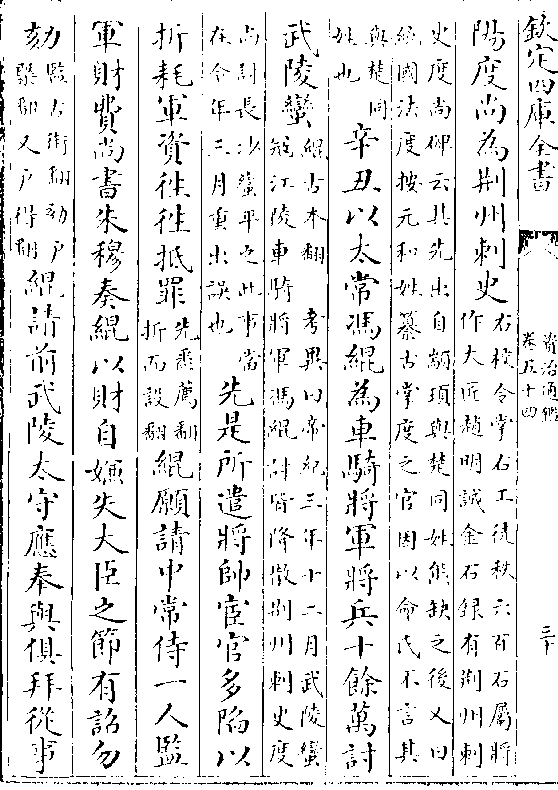 欽定四庫全書
資治通鑑
卷五十四
三十
陽度尚為荆州刺史右校令掌右工徒秩六百石屬將
作大匠趙明誠金石録有荆州刺
史度尚碑云其先出自顓頊與楚同姓熊缺之後又曰
統國法度按元和姓纂古掌度之官因以命氏不言其
與楚同
姓也辛丑以太常馮緄為車騎將軍將兵十餘萬討
武陵蠻緄古本翻考異曰帝紀三年十二月武陵蠻
寇江陵車騎將軍馮緄討皆降散荆州刺史度
尚討長沙蠻平之此事當
在今年二月重出誤也先是所遣將帥宦官多陷以
折耗軍資往往抵罪先悉薦翻
折而設翻緄願請中常侍一人監
軍財費尚書朱穆奏緄以財自嫌失大臣之節有詔勿
劾監古銜翻劾戶
槩翻又戶得翻緄請前武陵太守應奉與俱拜從事